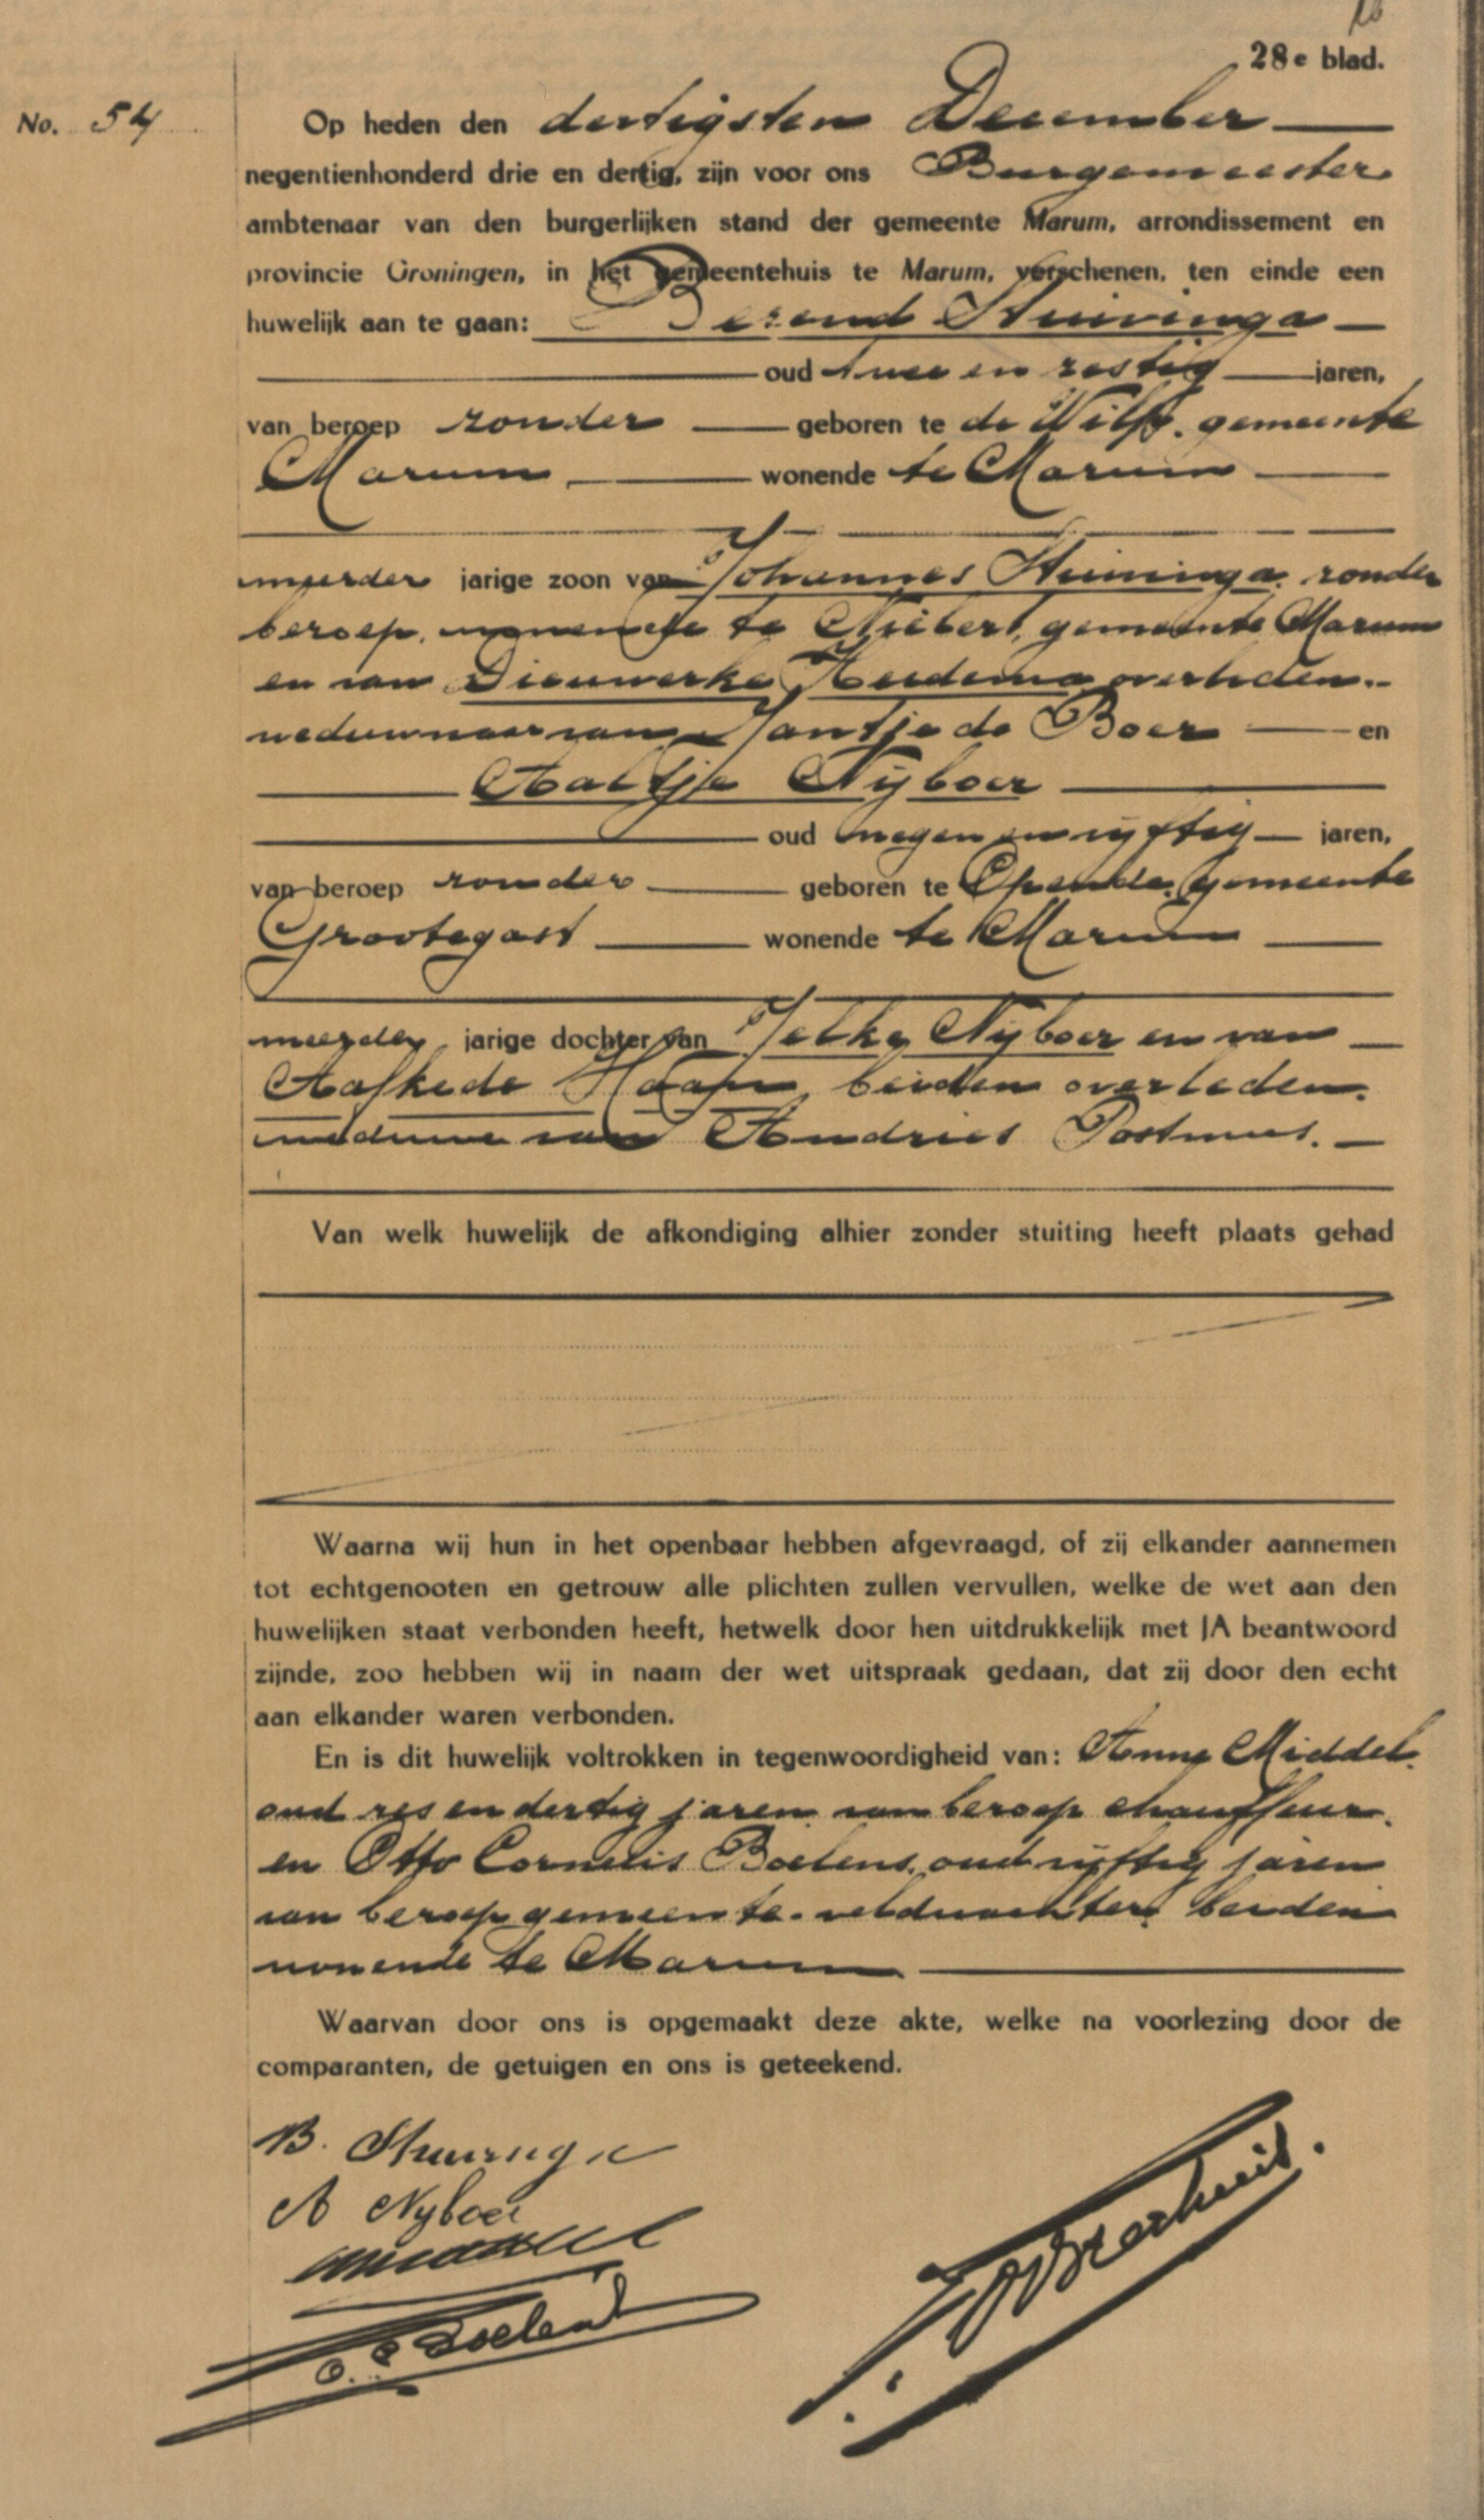 28e blad.
No. 54
Op heden den dertigsten December
negentienhonderd drie en dertig, zijn voor ons Burgemeester
ambtenaar van den burgerlijken stand der gemeente Marum, arrondissement en
provincie Groningen, in het gemeentehuis te Marum, verschenen, ten einde een
huwelijk aan te gaan: Berend Huininga
oud twee en zestig jaren,
van beroep zonder geboren te de Wilp, gemeente
Marum, wonende te Marum
meerder jarige zoon van Johannes Huininga, zonder
beroep, wonende te Niebert, gemeente Marum
en van Dieuwerke Heidema overleden.
weduwnaar van Jantje de Boer en
Aaltje Nijboer
oud negen en vijftig jaren,
van beroep zonder geboren te Opende, gemeente
Grootegast wonende te Marum
meerder jarige dochter van Jelke Nijboer en van
Aafke de Haan, beiden overleden.
weduwe van Andries Postmus.
Van welk huwelijk de afkondiging alhier zonder stuiting heeft plaats gehad
Waarna wij hun in het openbaar hebben afgevraagd, of zij elkander aannemen
tot echtgenooten en getrouw alle plichten zullen vervullen, welke de wet aan den
huwelijken staat verbonden heeft, hetwelk door hen uitdrukkelijk met JA beantwoord
zijnde, zoo hebben wij in naam der wet uitspraak gedaan, dat zij door den echt
aan elkander waren verbonden.
En is dit huwelijk voltrokken in tegenwoordigheid van: Anne Middel,
oud zes en dertig jaren van beroep chauffeur,
en Otto Cornelis Boelens, oud vijftig jaren
van beroep gemeente-veldwachter beiden
wonende te Marum
Waarvan door ons is opgemaakt deze akte, welke na voorlezing door de
comparanten, de getuigen en ons is geteekend.
B. Huininga
A Nijboer
O. C Boelens